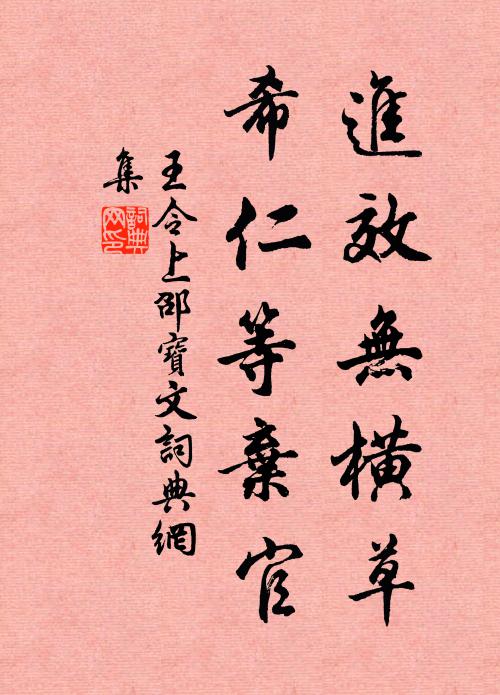 進效無橫草
希仁等棄官
王令上邵寶文詞典網
集
詞典網印